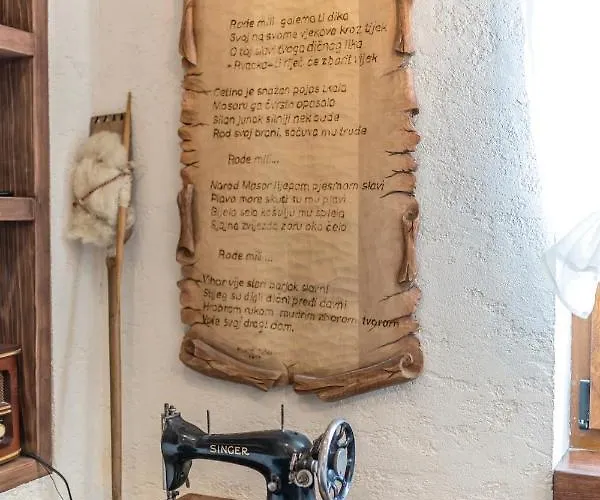 Rode mili golema ti dika
Svoj na svome vjekove kroz tijek
O toj slavi tvoga dičnog lika
riječ će zborit vijek
Cetina je snažan pojas tvoja
Mosoru ga čvrsto opasala
Silan junak silniji nek bude
Rod svoj brani, sačuva mu trude
Rode mili...
Narod Mosor lijepom pjesmom slavi
Plavo more skuti tu mu plavi
Bijela sela košulju mu
zvijezda zoru oko čela
Rode mili...
Vihor vije stari barjak slavni
Stijeg su digli dični pređi davni
Hrabrom rukom mudrim zborom tvorom
svoj dragi dom.
SINGER